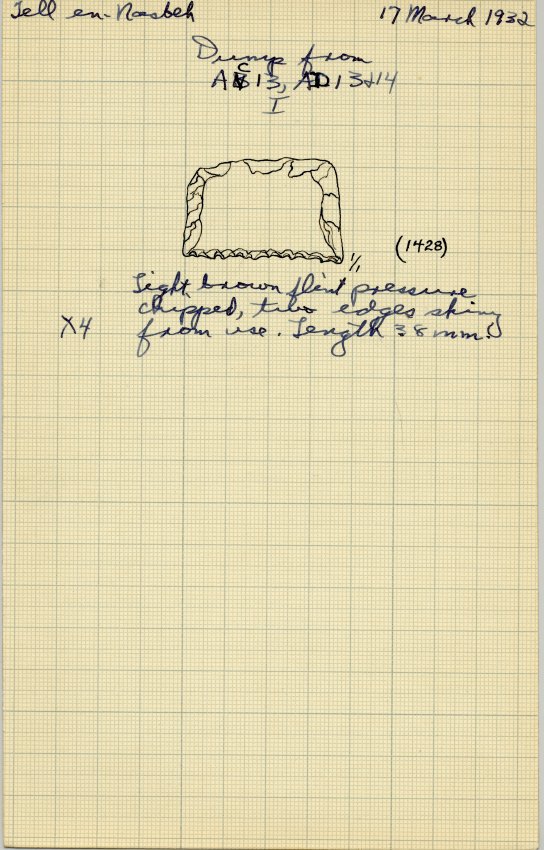 Tell en-Nasbeh 17 March 1932
Dump from
AC13, AD13+14
I
(1428)
1/1
Light brown flint pressure
chipped, two edges shiny
X4 from use. Length 38 mm.